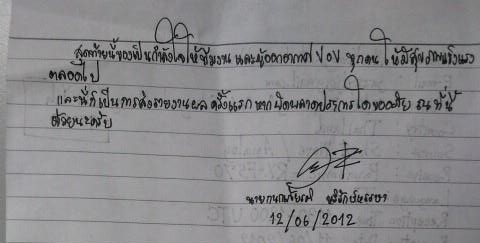 สุดท้ายนี้ขอเป็นกำลังใจให้ทีมงาน และผู้ออกอากาศ VOV ทุกคน ให้มีสุขภาพแข็งแรง
ตลอดไป
และนี่ก็เป็นการส่งรายงานผลครั้งแรก หากผิดพลาดประการใดขออภัย ณ ที่นี้
ด้วยนะครับ
12/06/2012